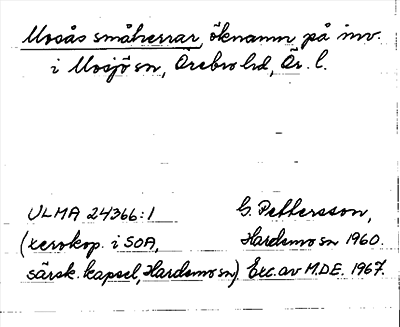 Mosås småherrar, öknamn på inv.
i Mosjö sn, Örebro hd, Ör. l.
ULMA 24366:1 G. Pettersson,
(xerokop. i SOA, Hardemo sn 1960.
särsk. kapsel, Hardemo sn) Exc. av M.DE. 1967.